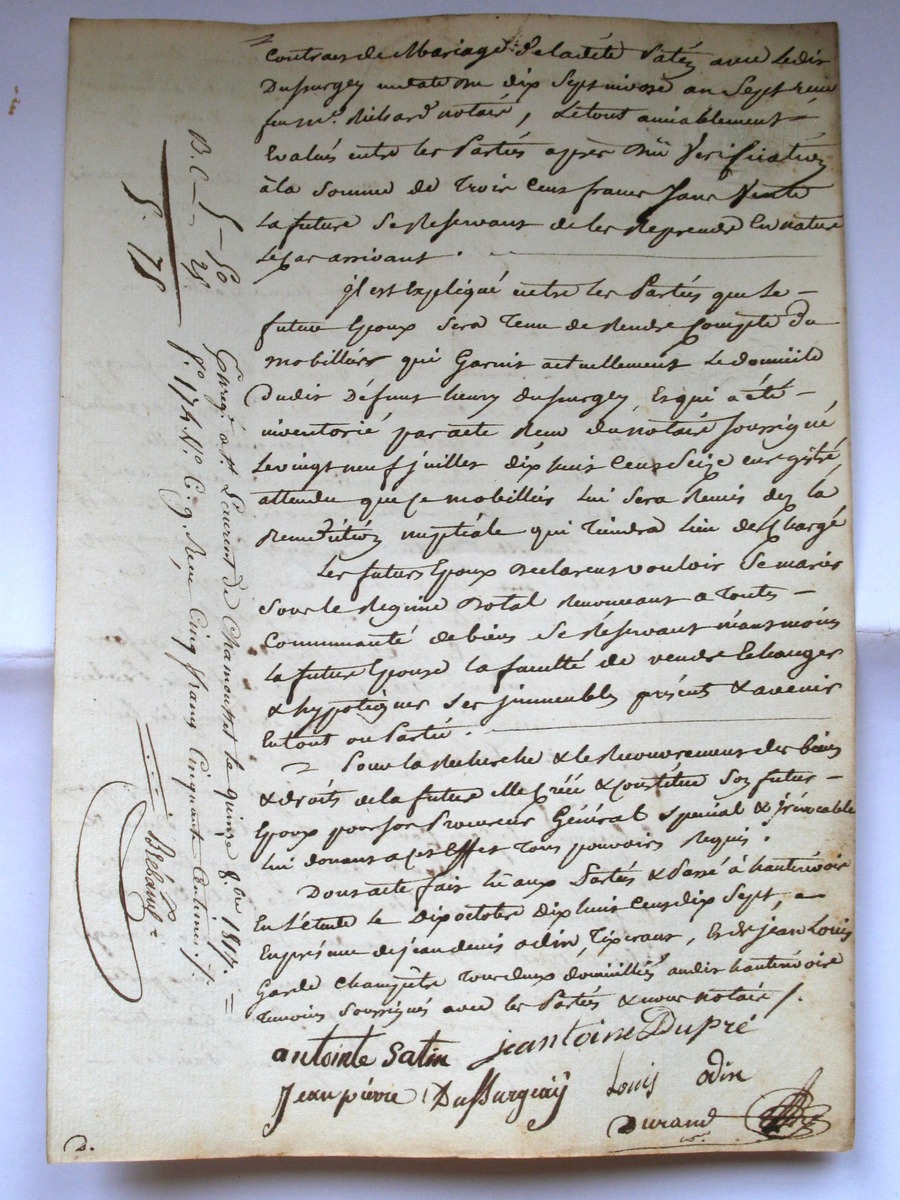 Contrat de Mariage de ladite Satin avec ledit
Dussurgey en date du dix Sept nivose an Sept reçu
feu Me. Richard notaire, le tout amiablement
Evalués entre les Parties après Vérification
à la Somme de Trois Cens francs Sans Vente
La future Se Réservant de les Reprendre En nature
le cas arrivant.
il est Expliqué entre les Parties que le
futur Epoux Sera Tenu de Rendre Compte du
mobillier qui Garnit actuellement le domicile
dudit Défunt henry dussurgey, Et qui a été
inventorié par acte Reçu du notaire Soussigné
le vingt neuf juillet dix huit Cent Seize enregistré,
attendu que ce mobillier lui Sera Remis dez la
Bénédiction nuptiale qui Tiendra lieu de Chargé
Les futurs Epoux Declarent vouloir Se marier
Sous le Régime Dotal Renonceant a Toutes
Communauté de biens Se Réservant néantmoins
la future Epouse la faculté de vendre Echanger
& hypotéquer Ses immeubles présent & avenir
En tout ou Partie.
Pour la Recherche & le Recouvrement des biens
& droits de la future Elle Créé & Constitue Son futur
Epoux pour Son Procureur Général Spécial & irrévocable
lui donant a cet Effet Tous pouvoirs Requis.
Dont acte fait lû aux Parties & Passé à hauterivoire
En l'étude le Dix octobre Dix huit Cent dix Sept,
En présence de jean denis odin, Tixerant, Et de jean Louis
Garde Champêtre Tous deux domiciliés audit hauterivoire
Temoins Soussignés avec les Parties & nous notaire
antointe Satin jeantoine Dupré
Jean pierre Dussurgeÿ Louis odin
Durand
D.
B. C 5 - 50
25
5. 75
Enregé. à St. Laurent de Chamousset le quinze 8.bre 1817.
f.o 174 No. C. 9. Reçu Cinq francs Cinquante Centimes